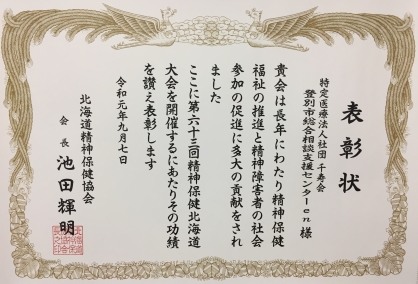 表彰状
特定医療法人社団 千寿会
登別市総合相談支援センターen 様
貴会は長年にわたり精神保健
福祉の推進と精神障害者の社会
参加の促進に多大の貢献をされ
ました
ここに第六十三回精神保健北海道
大会を開催するにあたりその功績
を讃え表彰します
令和元年九月七日
北海道精神保健協会
会長 池田輝明